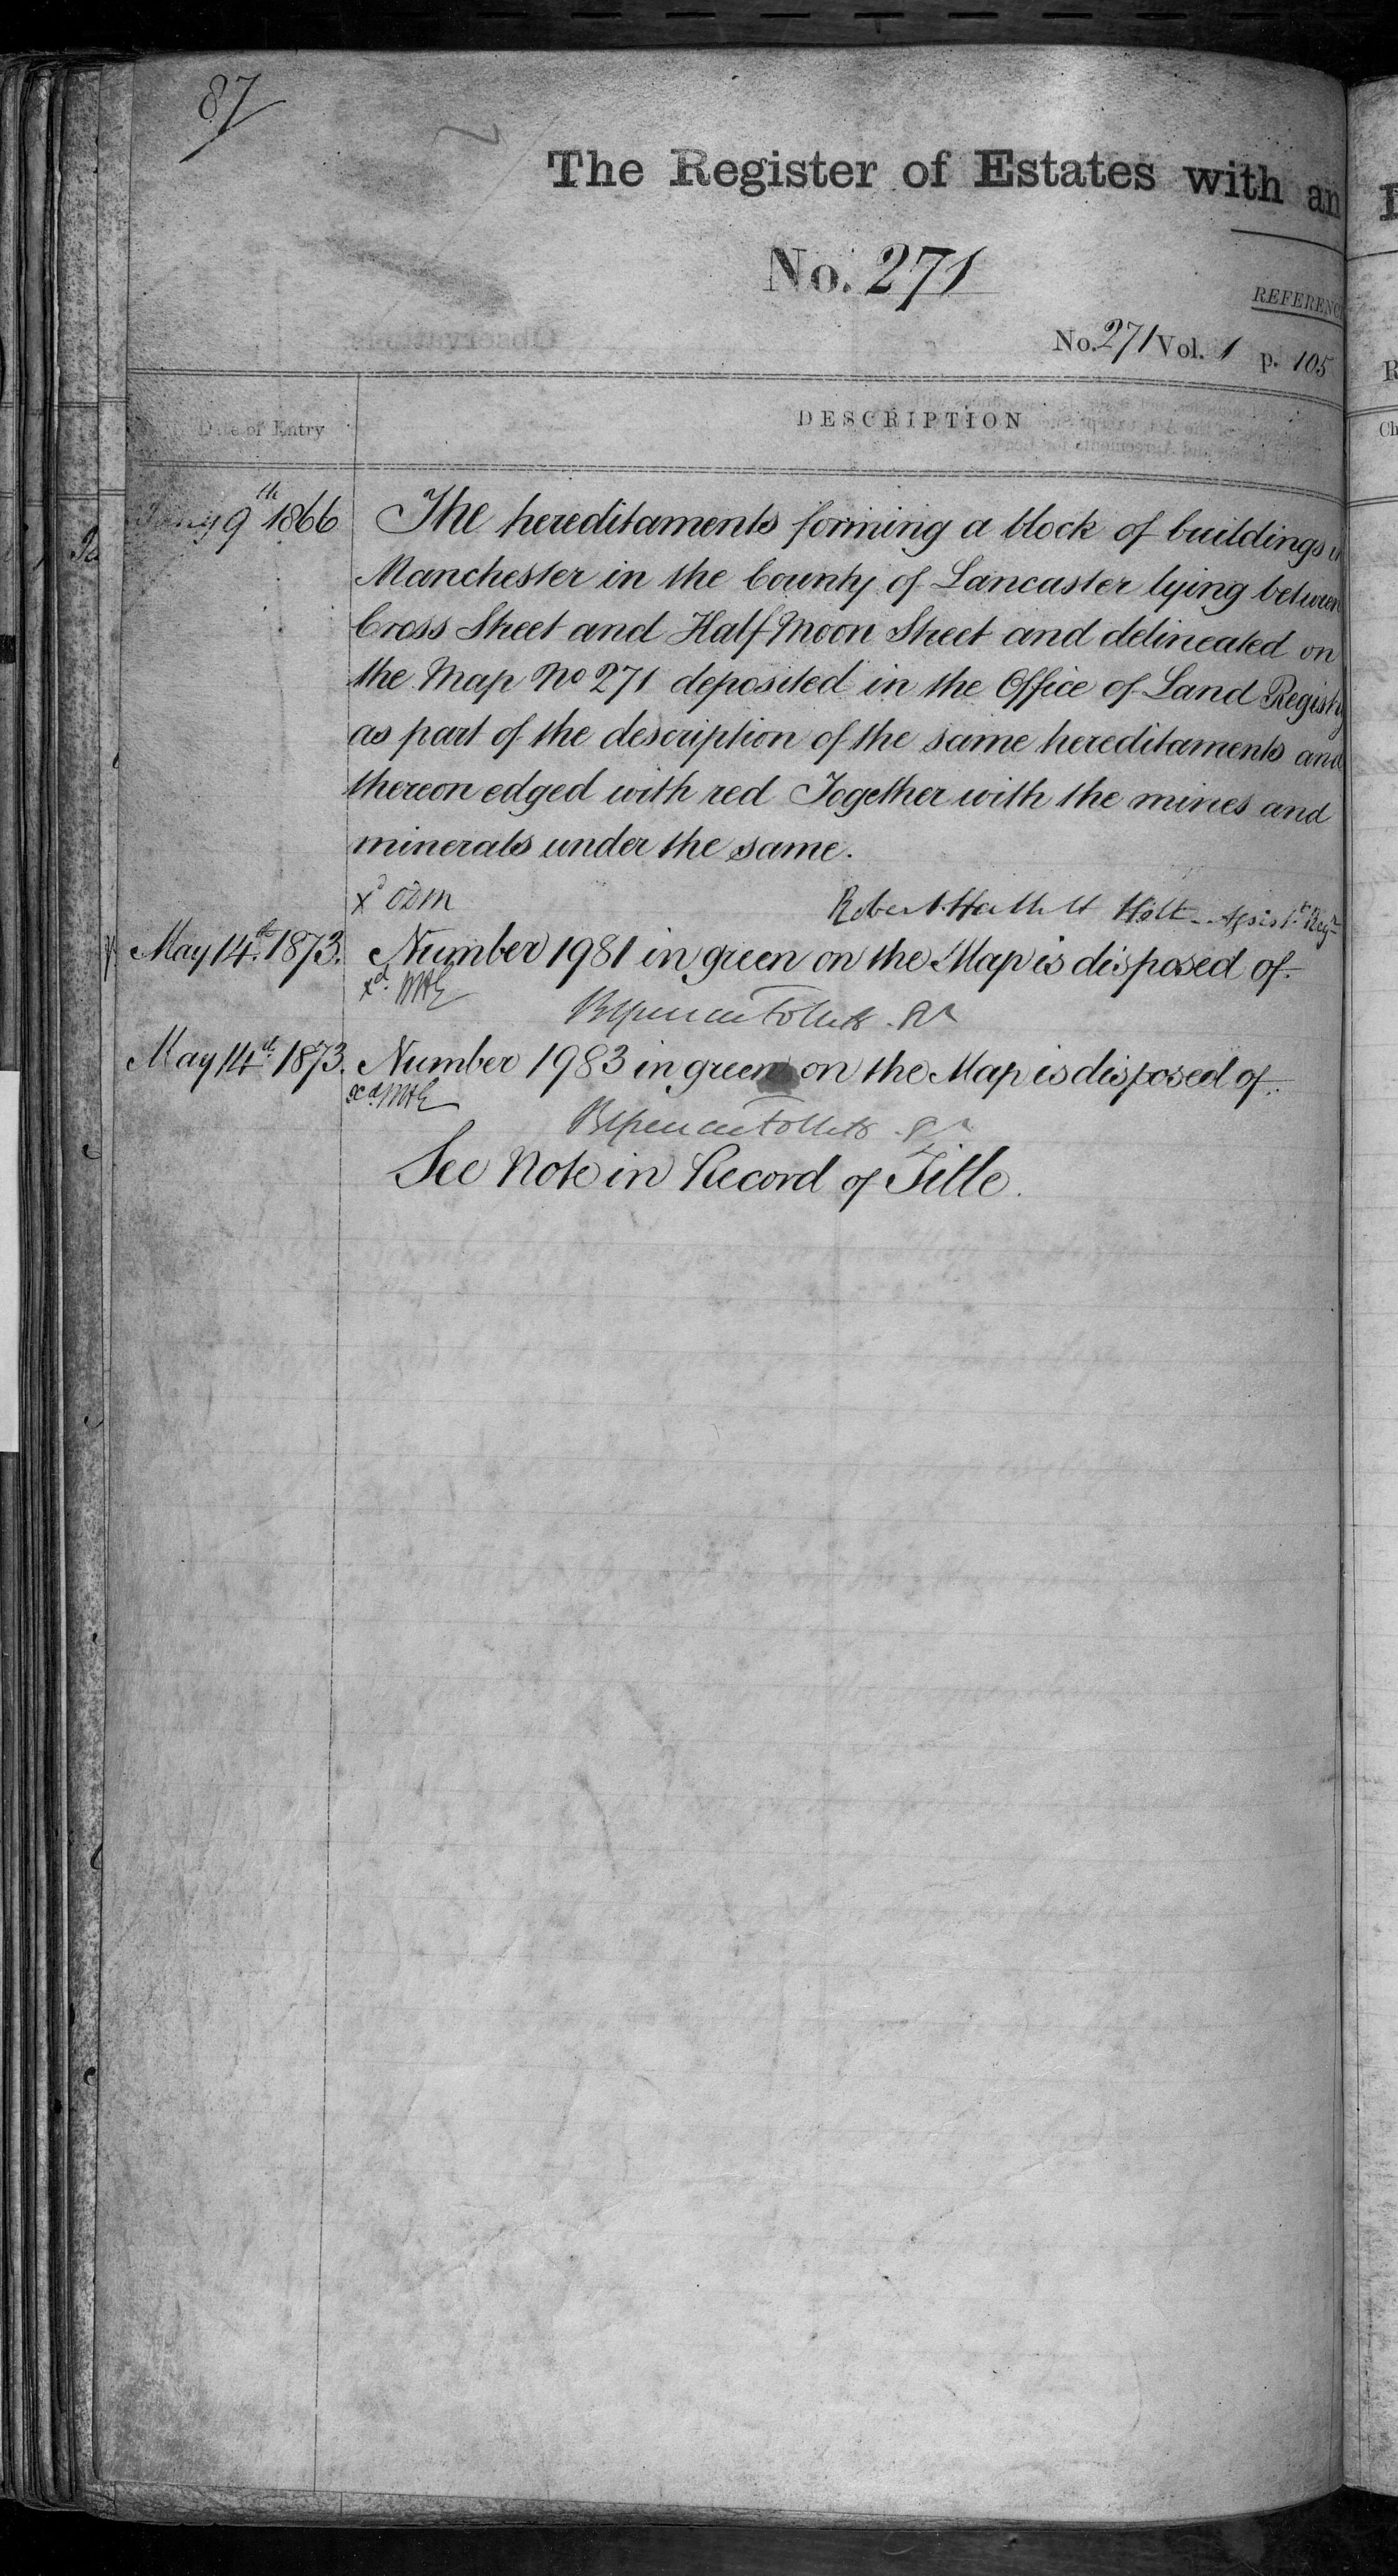 87
The Register of Estates with an
No. 271
REFERENC
No. 271 Vol. 1 p. 105
Date of Entry
DESCRIPTION
Jany 9th 1866
The hereditaments forming a block of buildings in
Manchester in the County of Lancaster lying between
Cross Street and Half Moon Street and delineated on
the Map No 271 deposited in the Office of Land Registry
as part of the description of the same hereditaments and
thereon edged with red Together with the mines and
minerals under the same.
Robert Hallett Holt - Assist. Regr
May 14th. 1873.
Number 1981 in green on the Map is disposed of.
May 14th. 1873.
Number 1983 in green on the Map is disposed of.
See Note in Record of Title.